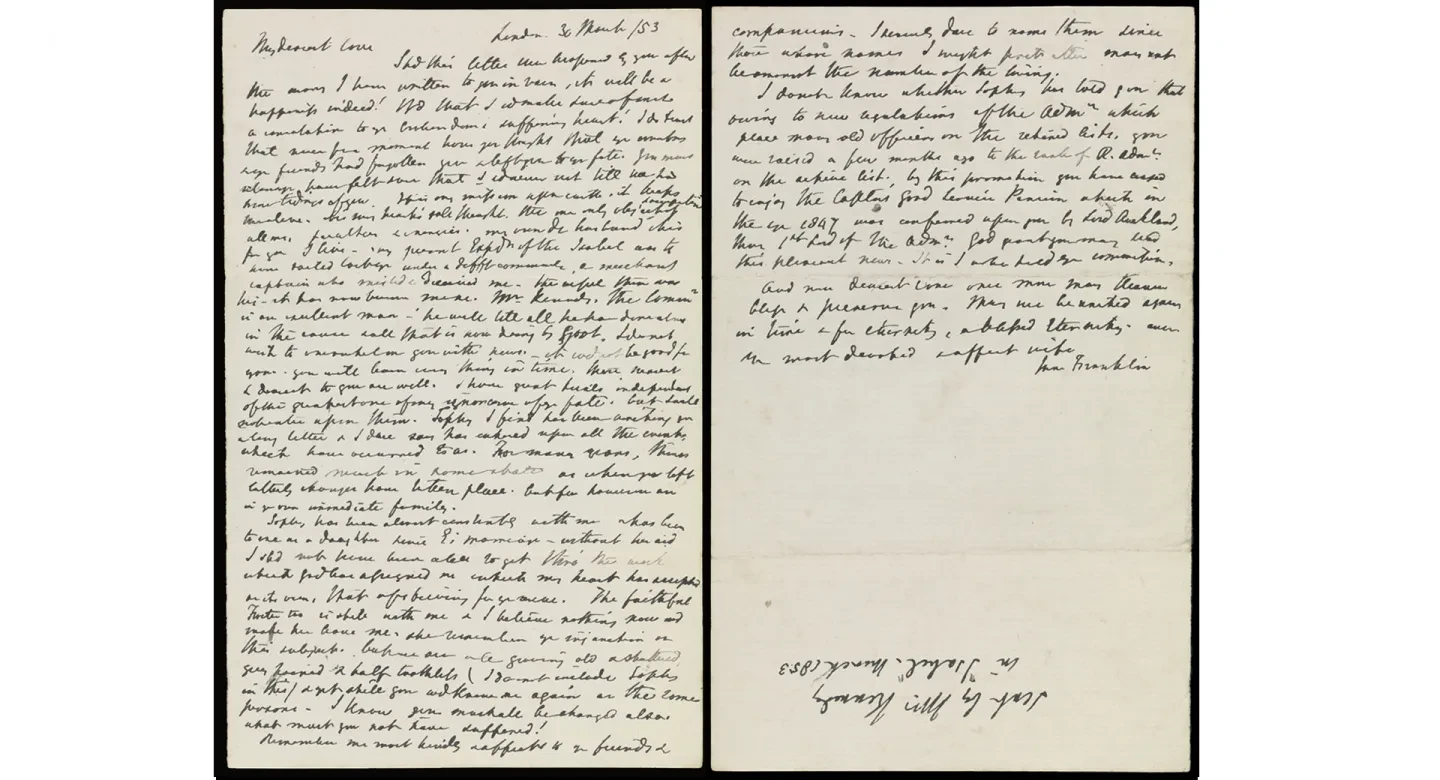 London. 30 March /53
My dearest love
Shd this letter ever be opened by you after
the many I have written to you in vain, it will be a
happiness indeed! Wd that I cd make sure of such
a consolation to yr suffering heart! I do trust
that never for a moment have you thought that yr
& yr friends had forgotten you & left you to yr fate. You must
always have felt sure that I cd never rest till we had
tidings of you. It is my mission upon earth, it keeps
me alive. It is my heart's sole thought, the one only object of
all my faculties & energies. my own dr husband it is
for you I live - my present Expdn of the Isabel was to
have sailed under a difft command, a merchant
captain who misled & deceived me - the
his - it has now become mine. Mr Kennedy, the Comm
is an excellent man - he will tell all he has done
in the cause & all that is now doing by Govt. I do not
wish to overwhelm you with news - it wd not be good for
you - you will learn every thing in time. Those nearest
& dearest to you are well. I have great trials independent
of this greatest one of my ignorance of yr fate. but I will
not enter upon them. Sophy I find has been writing you
a long letter & I dare say has entered upon all the events
which have occurred to us. For many years, things
remained much in same state as when you left
latterly changes have taken place. but few however are
in yr own immediate family.
Sophy has been almost constantly with me & has been
to me as a daughter since E's marriage - without her aid
I shd not have been able to get thro' the work
which God has assigned me & which my heart has accepted
as its own, that of striving for yr rescue. The faithful
is still with me & I believe nothing now wd
make her leave me. she remembers yr injunction on
this subject. but we are all growing old & shattered,
grey haired & half toothless (I do not include Sophy
in this) & yet still you wd know me again as the same
persons - I know you must all be changed also &
what must you not have suffered!
Remember me most kindly & affectly to yr friends &
companions - I scarcely dare to name them since
those whose names I might first utter may not
be amongst the number of the living.
I do not know whether Sophy has told you that
owing to new regulations of the Admy which
place many old officers on the retired lists, you
were raised a few months ago to the rank of R. Adml
on the active list; by this promotion you have ceased
to enjoy the Captns Good Service Pension which in
the yr 1847 was conferred upon you by Lord Auckland,
then 1st Lord of the Admy. God grant you may read
this pleasant news - It is I who hold yr commission.
And now dearest love once more may Heaven
bless & preserve you - May we be united again
in time & for eternity, a blessed Eternity - ever
yr most devoted & affect wife
Jane Franklin
Sent by Mr. Kennedy
in "Isabel" March 1853